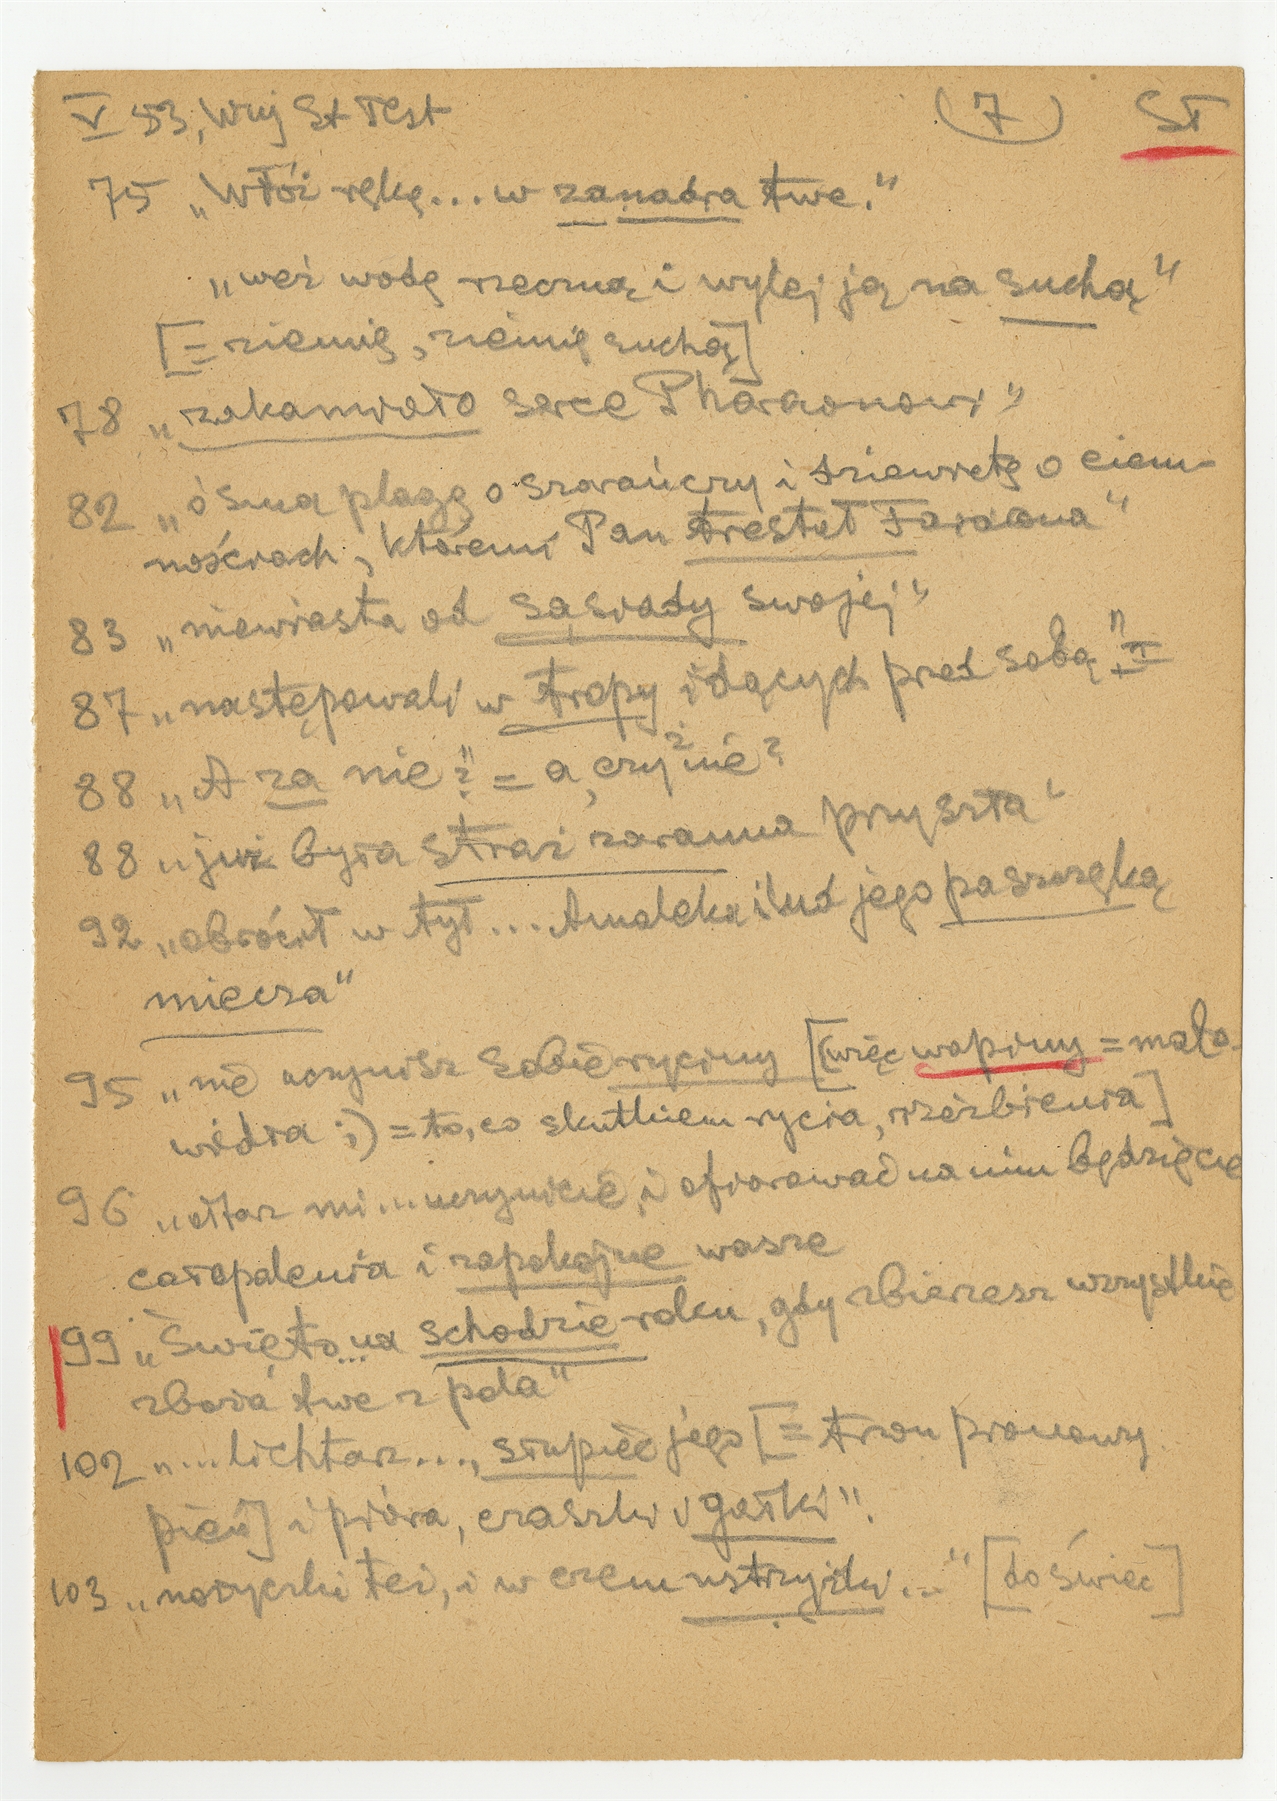 V 53, Wuj St Test (7) ST
75 „Włóż rękę... w zanadra twe."
„weź wodę rzeczną i wylej ją na suchą"
[= ziemię, ziemię suchą]
78 „zakamiało serce Pharaonowi"
82 „ósmą plagę o szarańczy i dziewiętę o ciem-
nościach, któremi Pan trestał Faraona"
83 „niewiasta od sąsiady swojej"
87 „następowali w tropy idących przed sobą"
88 „A za nie?" = a, czyż nie?
88 „już była straż zaranna przyszła"
92 „obrócił w tył... Amaleka i lud jego paszczęką
miecza"
95 „nie uczynisz sobie ryciny [(więc wapiny = malo-
widła ;) = to, co skutkiem rycia, rzeźbienia]
96 „ołtarz mi... uczynicie, i ofiarować na nim będziecie
całopalenia i zapokojne wasze
99 „Święto... na schodzie roku, gdy zbierzesz wszystkie
zboża twe z pola"
102 „...lichtarz..., słupiec jego [= trzon pionowy
pień] i pióra, czaszki i gałki".
103 „nożyczki też, i w czem ustrzyżki..." [do świec]